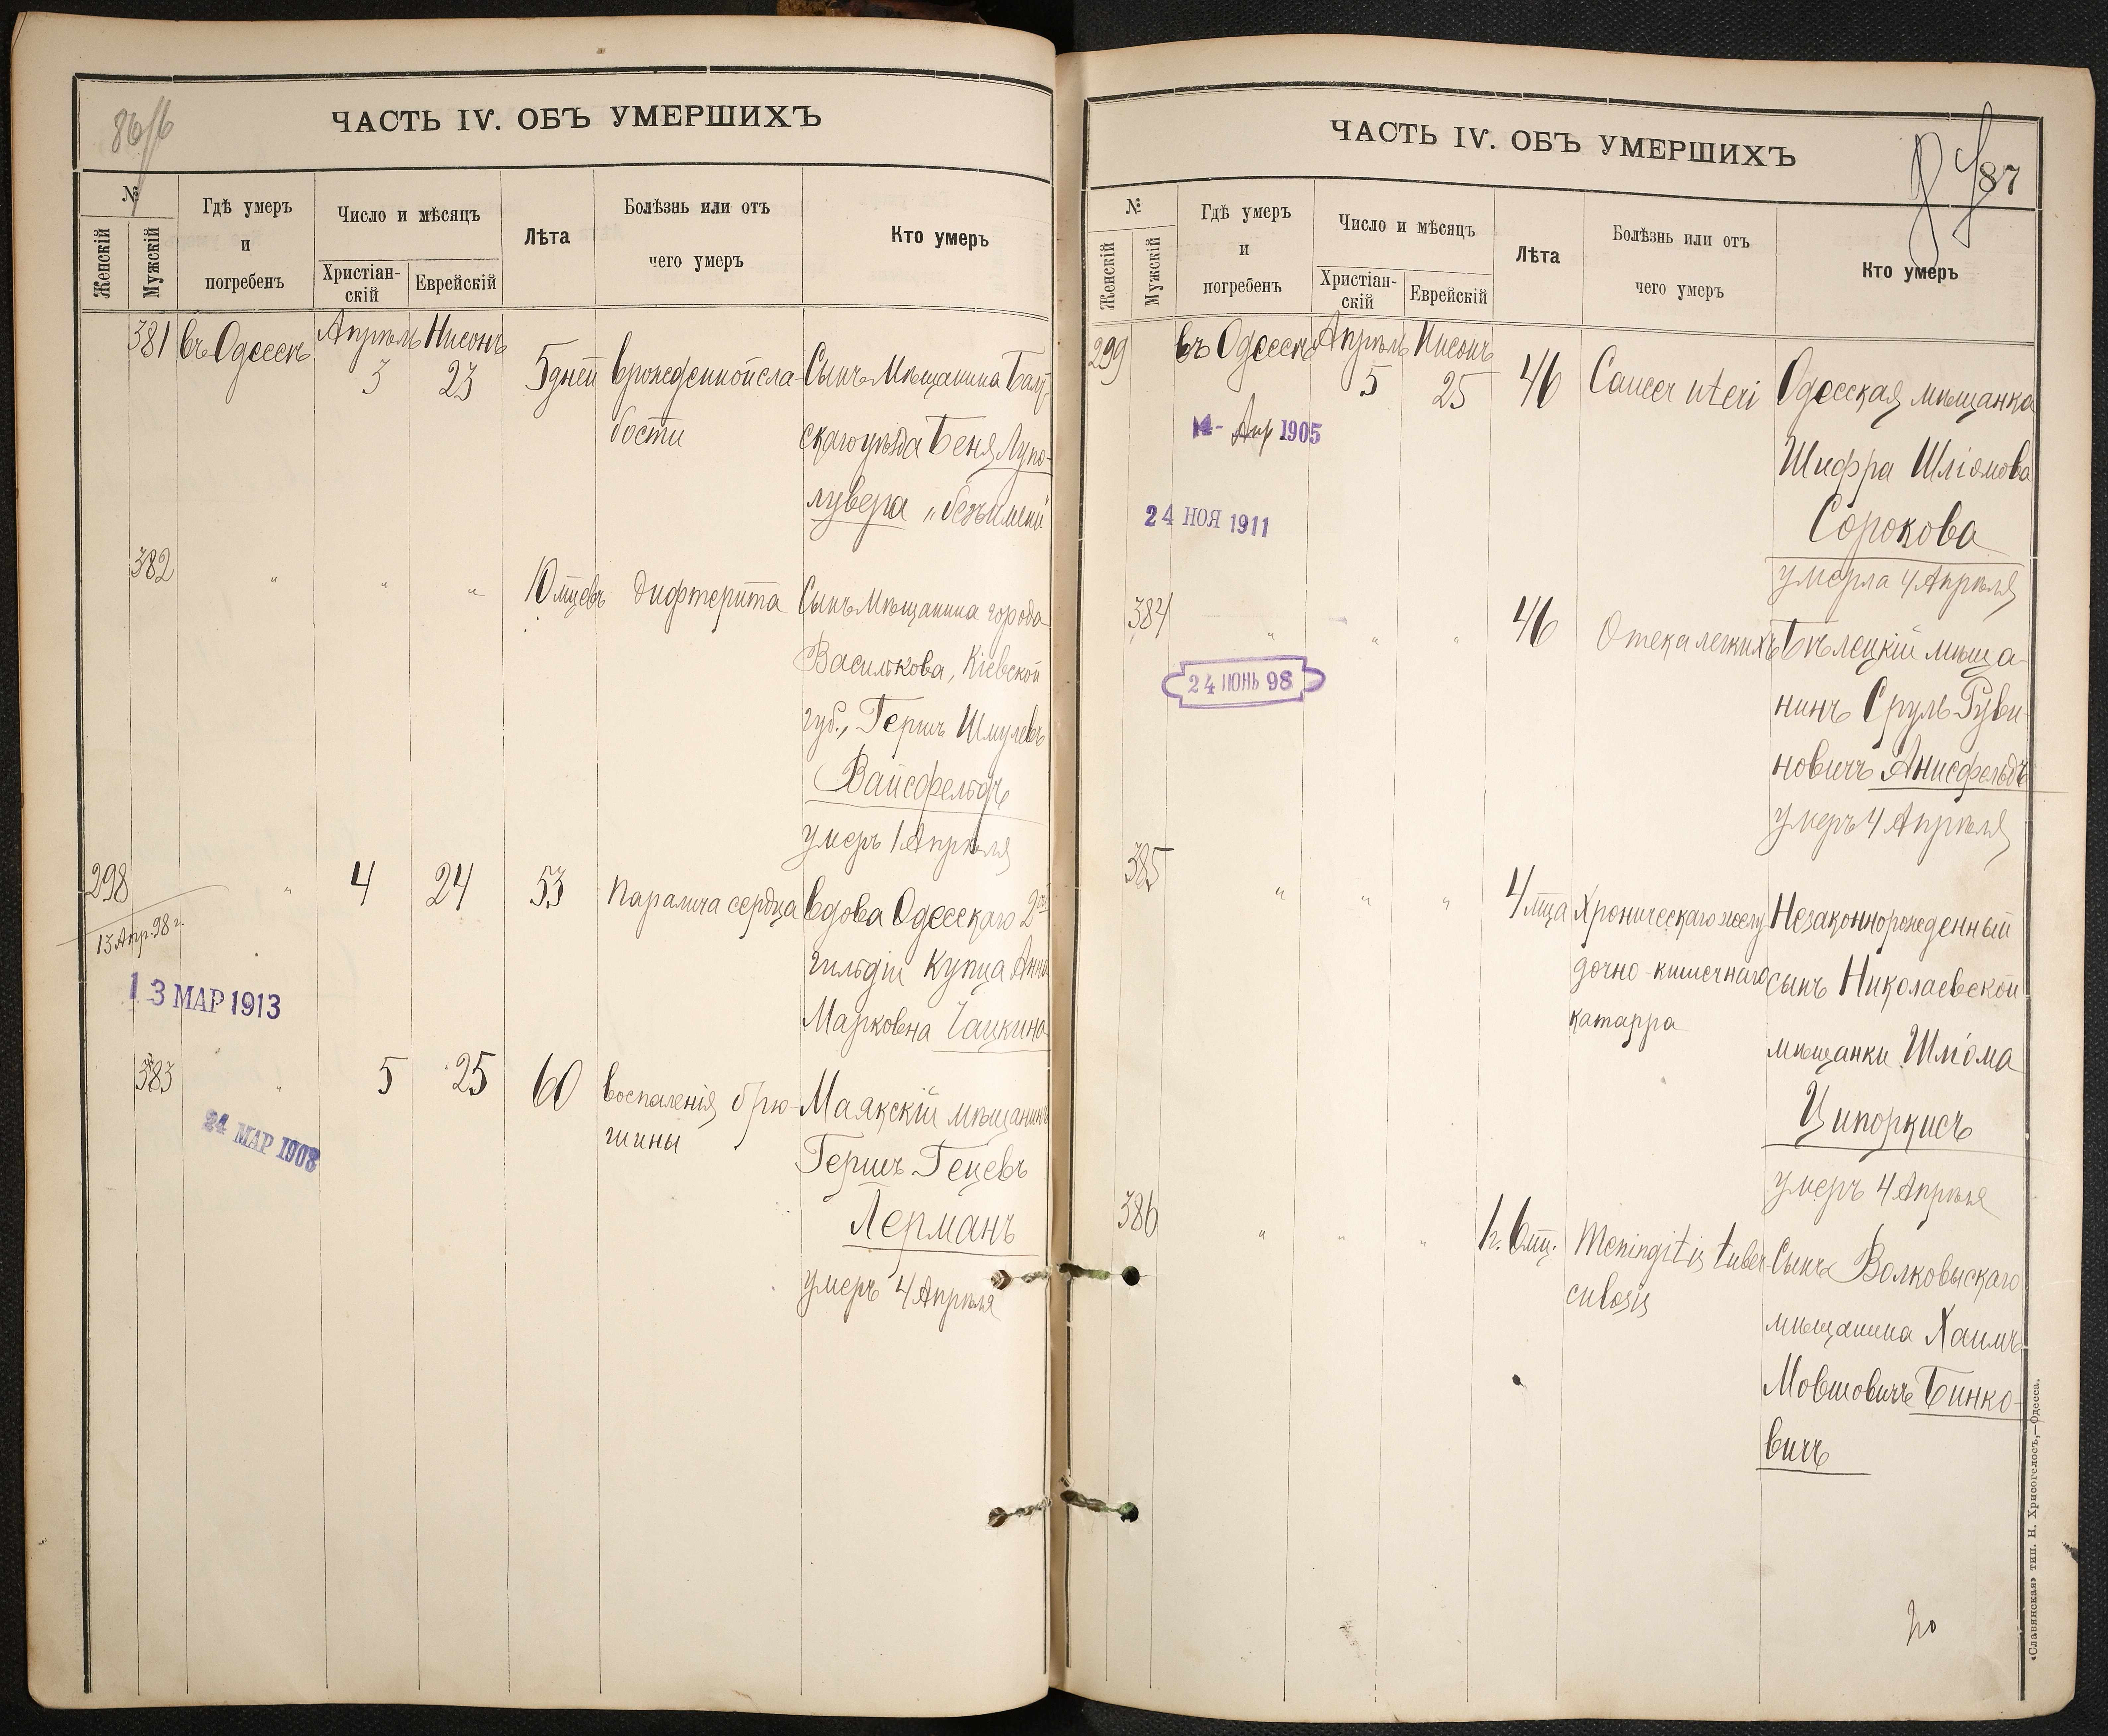 86/б
ЧАСТЬ IV. ОБЪ УМЕРШИХЪ
№
Женскій
Мужскій
Гдѣ умеръ
и
погребенъ
Число и мѣсяцъ
Христіан-
скій
Еврейскій
Лѣта
Болѣзнь или отъ
чего умеръ
Кто умеръ
381 въ Одессѣ Апрѣль Нисонъ
3 23 5 дней врожденной сла- Сынъ Мѣщанина Балт-
бости скаго уѣзда Беня Лупо-
лувера „безъимени"
382 " " " 10 мцевъ дифтерита Сынъ Мѣщанина города
Василькова, Кіевской
губ., Гершъ Шмулевъ
Вайсфельдъ
умеръ 1 Апрѣля
298 " 4 24 53 Паралича сердца вдова Одесскаго 2ой
13 Апр. 98 г. гильдіи Купца Анна
13 МАР 1913 Марковна Чацкина
383 " 5 25 60 воспаленія брю- Маякскій мѣщанинъ
24 МАР 1908 шины Гершъ Гецевъ
Лерманъ
умеръ 4 Апрѣля
87
ЧАСТЬ IV. ОБЪ УМЕРШИХЪ
87
№
Женскій
Мужскій
Гдѣ умеръ
и
погребенъ
Число и мѣсяцъ
Христіан-
скій
Еврейскій
Лѣта
Болѣзнь или отъ
чего умеръ
Кто умеръ
299 въ Одессѣ Апрѣль Нисонъ
5 25 46 Cancer uteri Одесская мѣщанка
14 - Апр 1905 Шифра Шліомова
24 НОЯ 1911 Сорокова
умерла 4 Апрѣля
384 " " " 46 Отека легкихъ Бѣлецкій мѣща-
24 ІЮНЬ 98 нинъ Сруль Руви-
новичъ Анисфельдъ
умеръ 4 Апрѣля
385 " " " 4 мца Хроническаго желу- Незаконнорожденный
дочно-кишечнаго сынъ Николаевской
катарра мѣщанки Шліома
Ципоркисъ
умеръ 4 Апрѣля
386 " " " 1 г. 6 мц. Meningitis tuber- Сынъ Волковыскаго
culosis мѣщанина Хаимъ
Мовшовичъ Бинко-
вичъ
«Славянская» тип. Н. Хрисогелосъ,—Одесса.